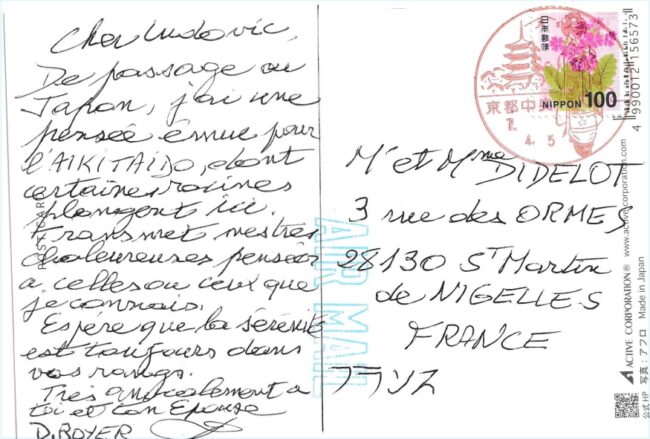 Cher Ludovic,
De passage au
Japon, j'ai une
pensée émue pour
l'AIKITAIDO, dont
certaines racines
plongent ici.
Transmet mes très
chaleureuses pensées
à celles ou ceux que
je connais.
Espère que la sérénité
est toujours dans
vos rangs.
Très amicalement à
toi et ton Epouse
D. ROYER
AIR MAIL
日本郵便
NIPPON 100
京都中央
7.
4.5
Mr et Mme DIDELOT
3 rue des ORMES
28130 St Martin
de NIGELLES
FRANCE
フランス
4 990012 156573
ACTIVE CORPORATION® www.active-corporation.com
写真：アフロ Made in Japan
公式HP